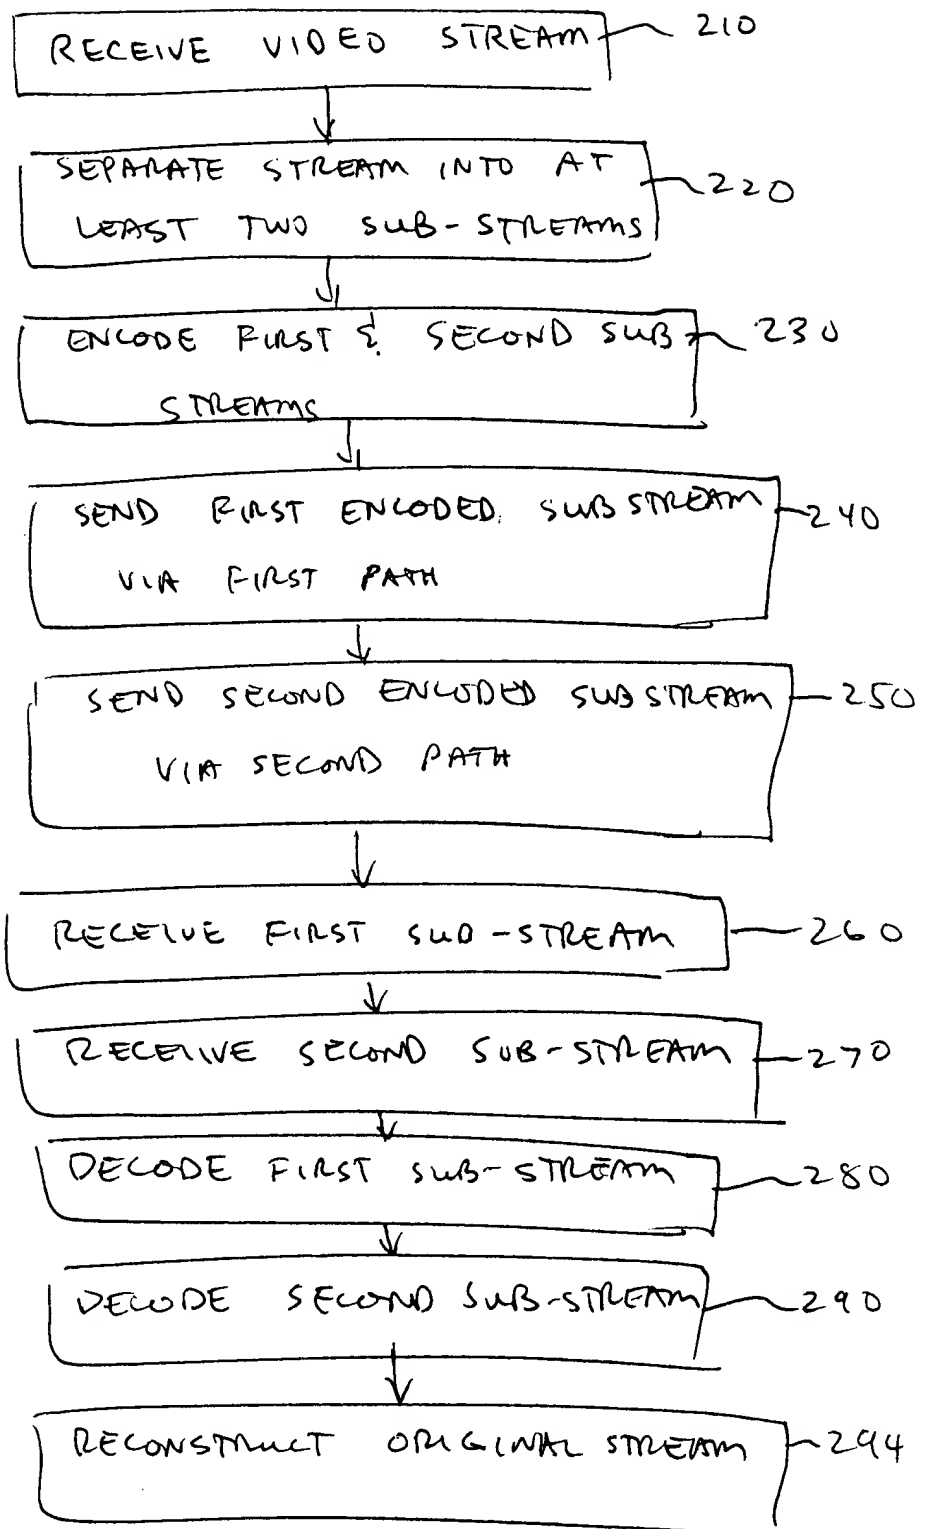 RECEIVE VIDEO STREAM 210
SEPARATE STREAM INTO AT
220
LEAST TWO SUB-STREAMS
ENCODE FIRST & SECOND SUB 230
STREAMS
SEND FIRST ENCODED SUBSTREAM 240
VIA FIRST PATH
SEND SECOND ENCODED SUBSTREAM 250
VIA SECOND PATH
RECEIVE FIRST SUB-STREAM 260
RECEIVE SECOND SUB-STREAM 270
DECODE FIRST SUB-STREAM 280
DECODE SECOND SUB-STREAM 290
RECONSTRUCT ORIGINAL STREAM 294